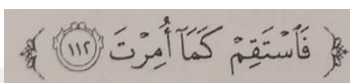 ﴿ فَٱسْتَقِمْ كَمَآ أُمِرْتَ ١١٢ ﴾